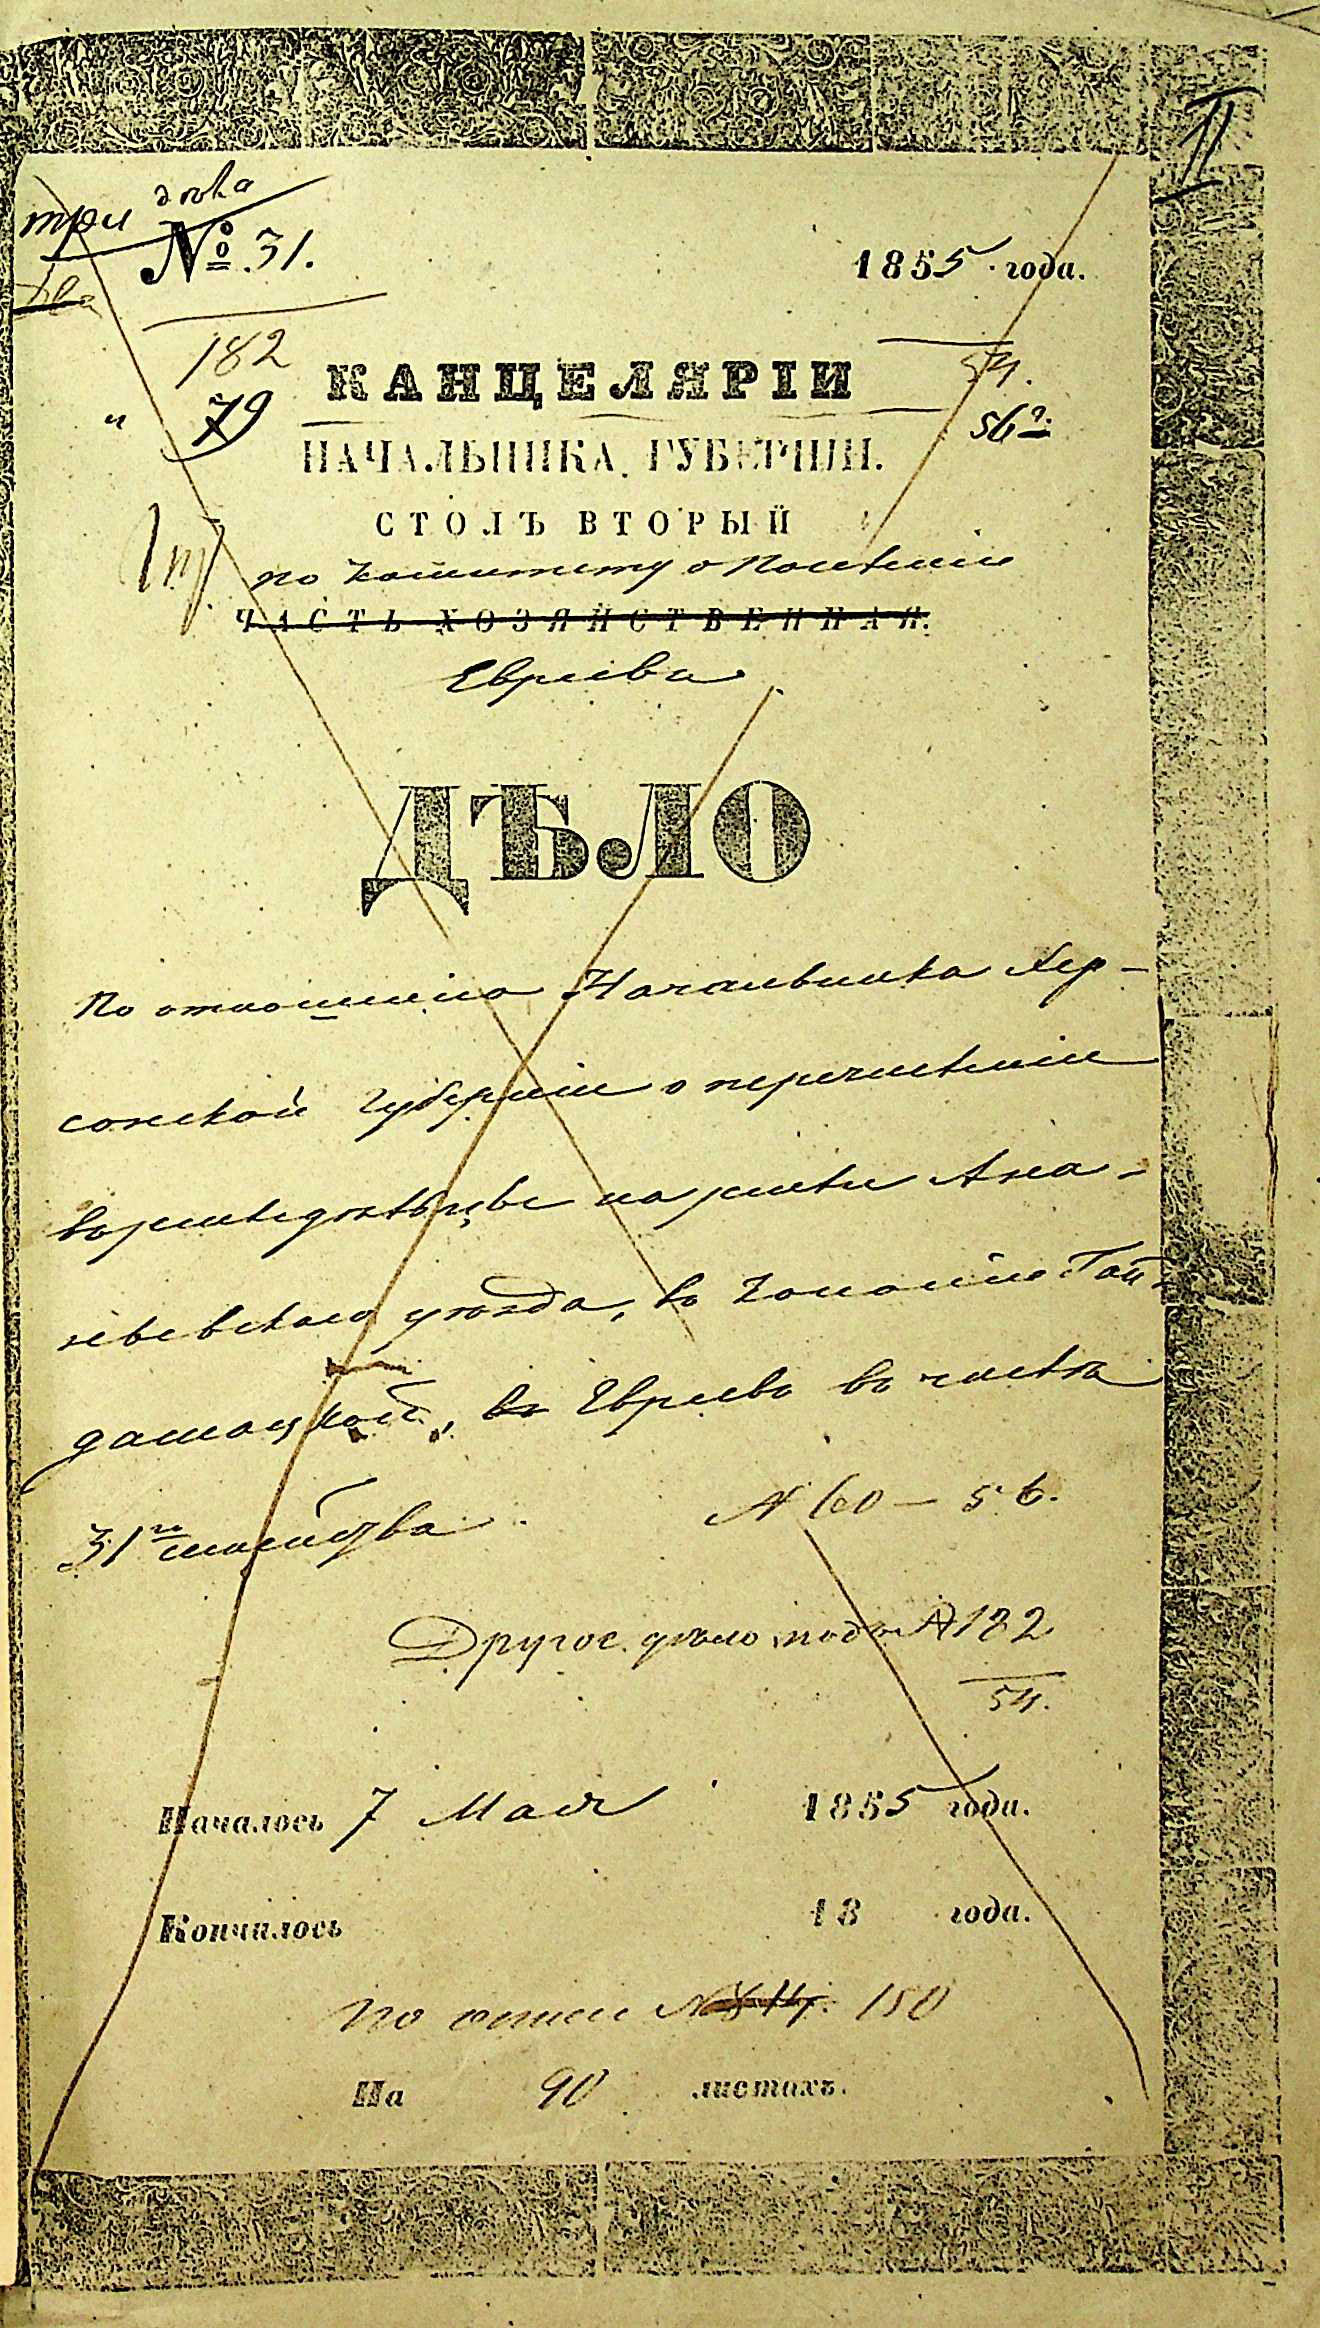 II
три дѣла
№ 31.
два
1855 года.
182
54.
КАНЦЕЛЯРІИ
и 79
56 г.
НАЧАЛЬНИКА ГУБЕРНІИ.
СТОЛЪ ВТОРЫЙ
по Комитету о Поселеніи
ЧАСТЬ ХОЗЯЙСТВЕННАЯ.
Евреевъ
ДѢЛО
По отношенію Начальника Хер-
сонской Губерніи о перечисленіи
въ земледѣльцы на земли Ана-
ньевскаго уѣзда, въ Колонію Гай-
дамацкой, Евреевъ въ числѣ
31го семейства
№ 60 – 56.
Другое дѣло подъ № 182
54.
Началось 7 Мая 1855 года.
Кончилось 18 года.
По описи № 150
На 90 листахъ.